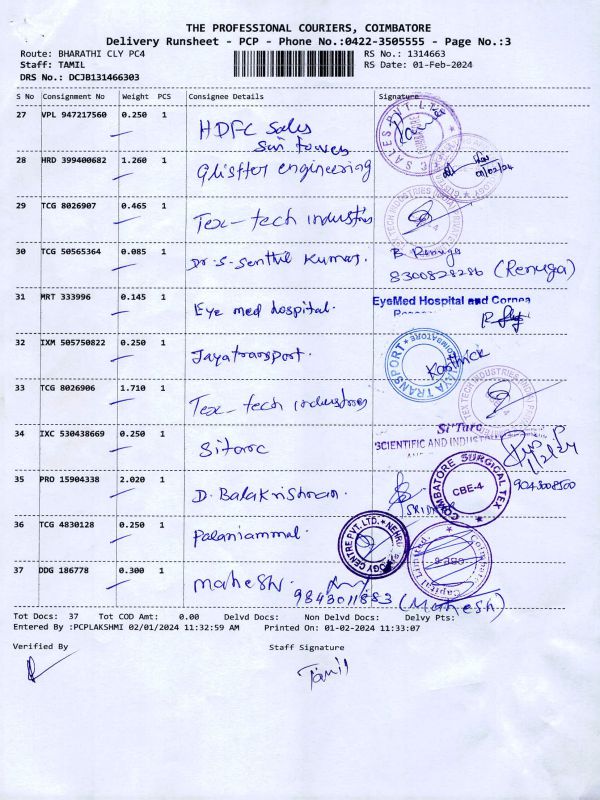 THE PROFESSIONAL COURIERS, COIMBATORE
Delivery Runsheet - PCP - Phone No.:0422-3505555 - Page No.:3
Route: BHARATHI CLY PC4
RS No.: 1314663
Staff: TAMIL
RS Date: 01-Feb-2024
DRS No.: DCJB131466303
S No Consignment No Weight PCS Consignee Details Signature
27 VPL 947217560 0.250 1 HDFC Sales
Sun towers
28 HRD 399400682 1.260 1 Glistter engineering
01/02/24
29 TCG 8026907 0.465 1 Tex-tech industries
30 TCG 50565364 0.085 1 Dr. S. Senthil Kumar. B. Renuga
8300828286 (Renuga)
31 MRT 333996 0.145 1 Eye med hospital. EyeMed Hospital and Cornea
32 IXM 505750822 0.250 1 Jayatransport. JAYA TRANSPORT * COIMBATORE * Karthick
33 TCG 8026906 1.710 1 Tex-tech industries
34 IXC 530438669 0.250 1 Sitarc Si'Tarc
SCIENTIFIC AND INDUSTRIAL
1/2/24
9043008500
35 PRO 15904338 2.020 1 D. Balakrishnan. COIMBATORE SURGICAL TEX
CBE-4
36 TCG 4830128 0.250 1 Palaniammal.
37 DDG 186778 0.300 1 Mahesh. Capital Limited.
9843011883 (Mahesh)
Tot Docs: 37 Tot COD Amt: 0.00 Delvd Docs: Non Delvd Docs: Delvy Pts:
Entered By :PCPLAKSHMI 02/01/2024 11:32:59 AM Printed On: 01-02-2024 11:33:07
Verified By Staff Signature
Tamil